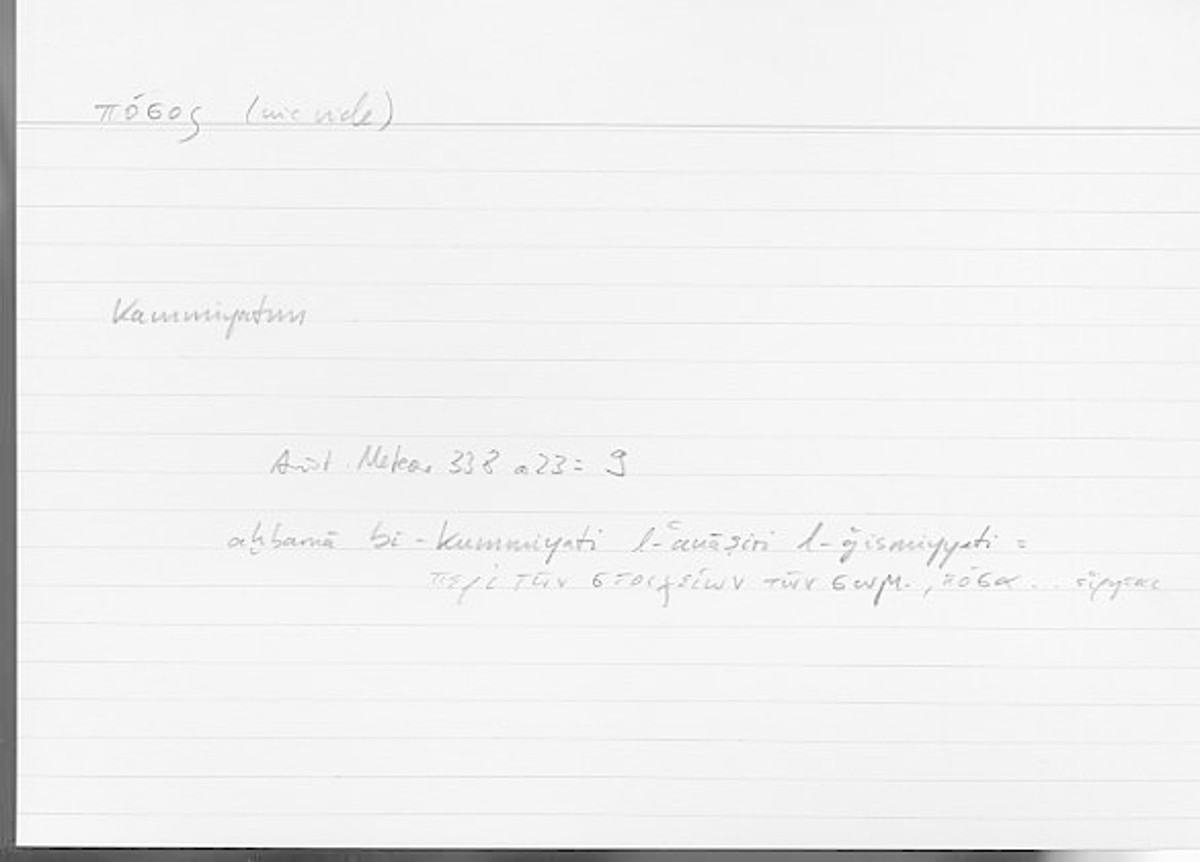 πόσος (wie viele)
Kammiyatun
Arist. Meteor. 338 a23 = 9
aḫbarnā bi-kammiyati l-ʿanāṣiri l-ǧismiyyati =
περὶ τῶν στοιχείων τῶν σωμ., πόσα ... εἴρηται